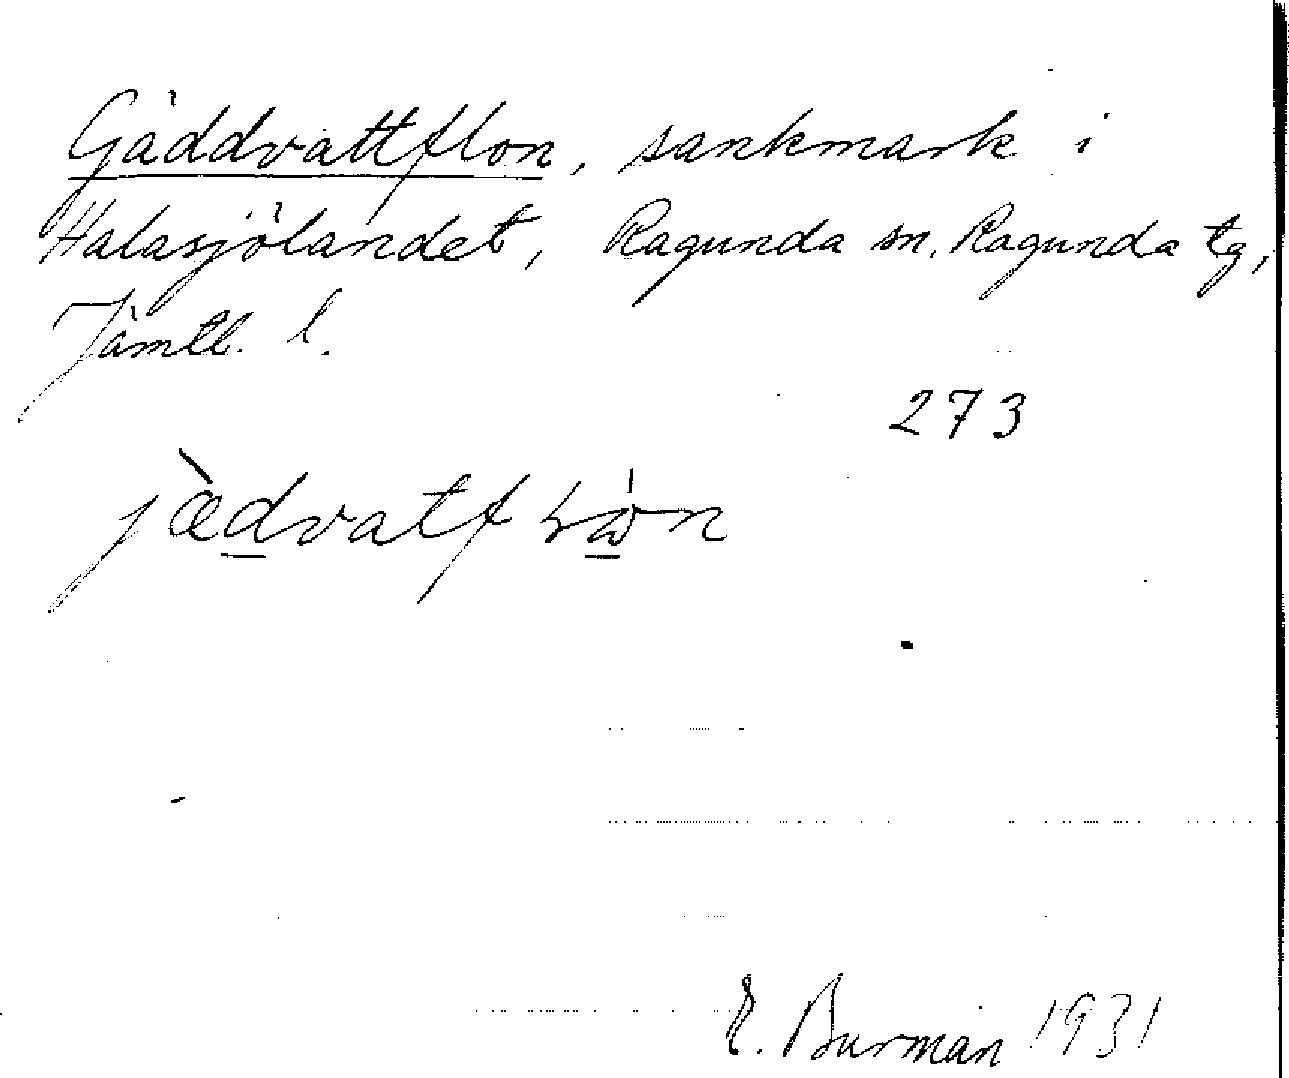 Gäddvattflon, sankmark i
Halasjölandet, Ragunda sn, Ragunda tg,
Jämtl. l.
273
E. Burman 1931